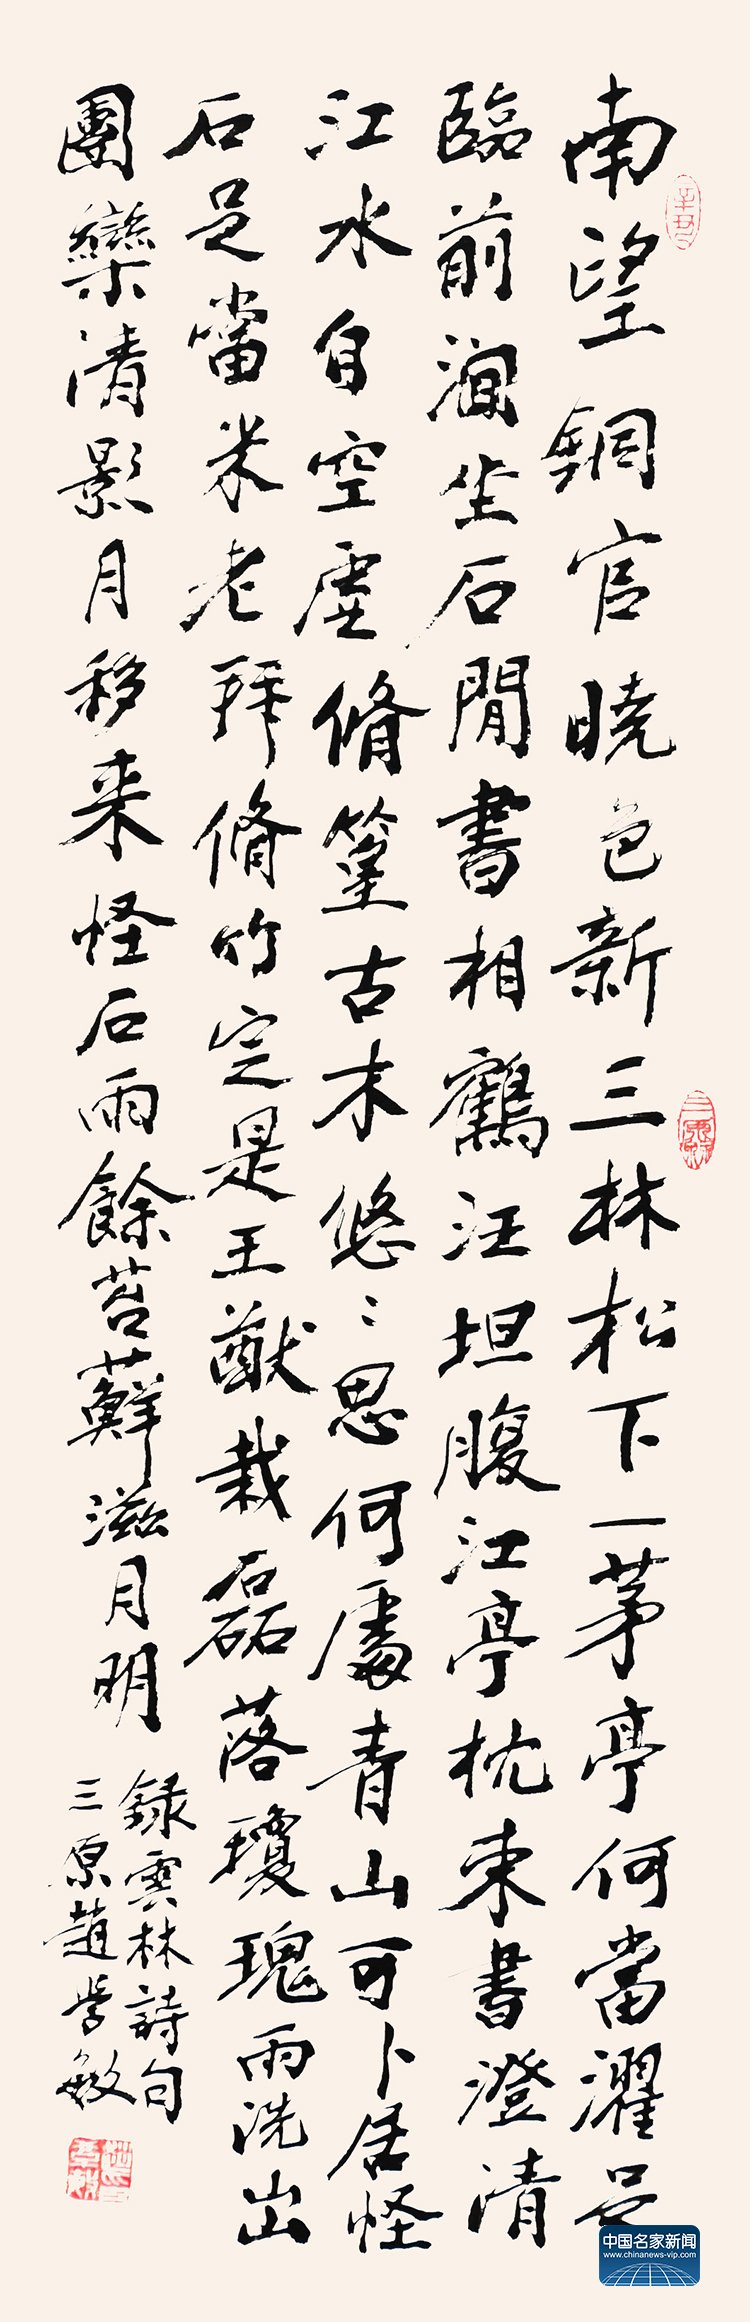 南望銅官曉色新三林松下一茅亭何當濯足
臨前澗坐石閒書相鶴汪坦腹江亭枕束書澄清
江水自空虛脩篁古木悠〻思何處青山可卜居怪
石足當米老拜脩竹定是王猷栽磊落瓊瑰雨洗出
團欒清影月移来怪石雨餘苔蘚滋月明
錄雲林詩句
三原趙學敏
辛丑
中国名家新闻
www.chinanews-vip.com